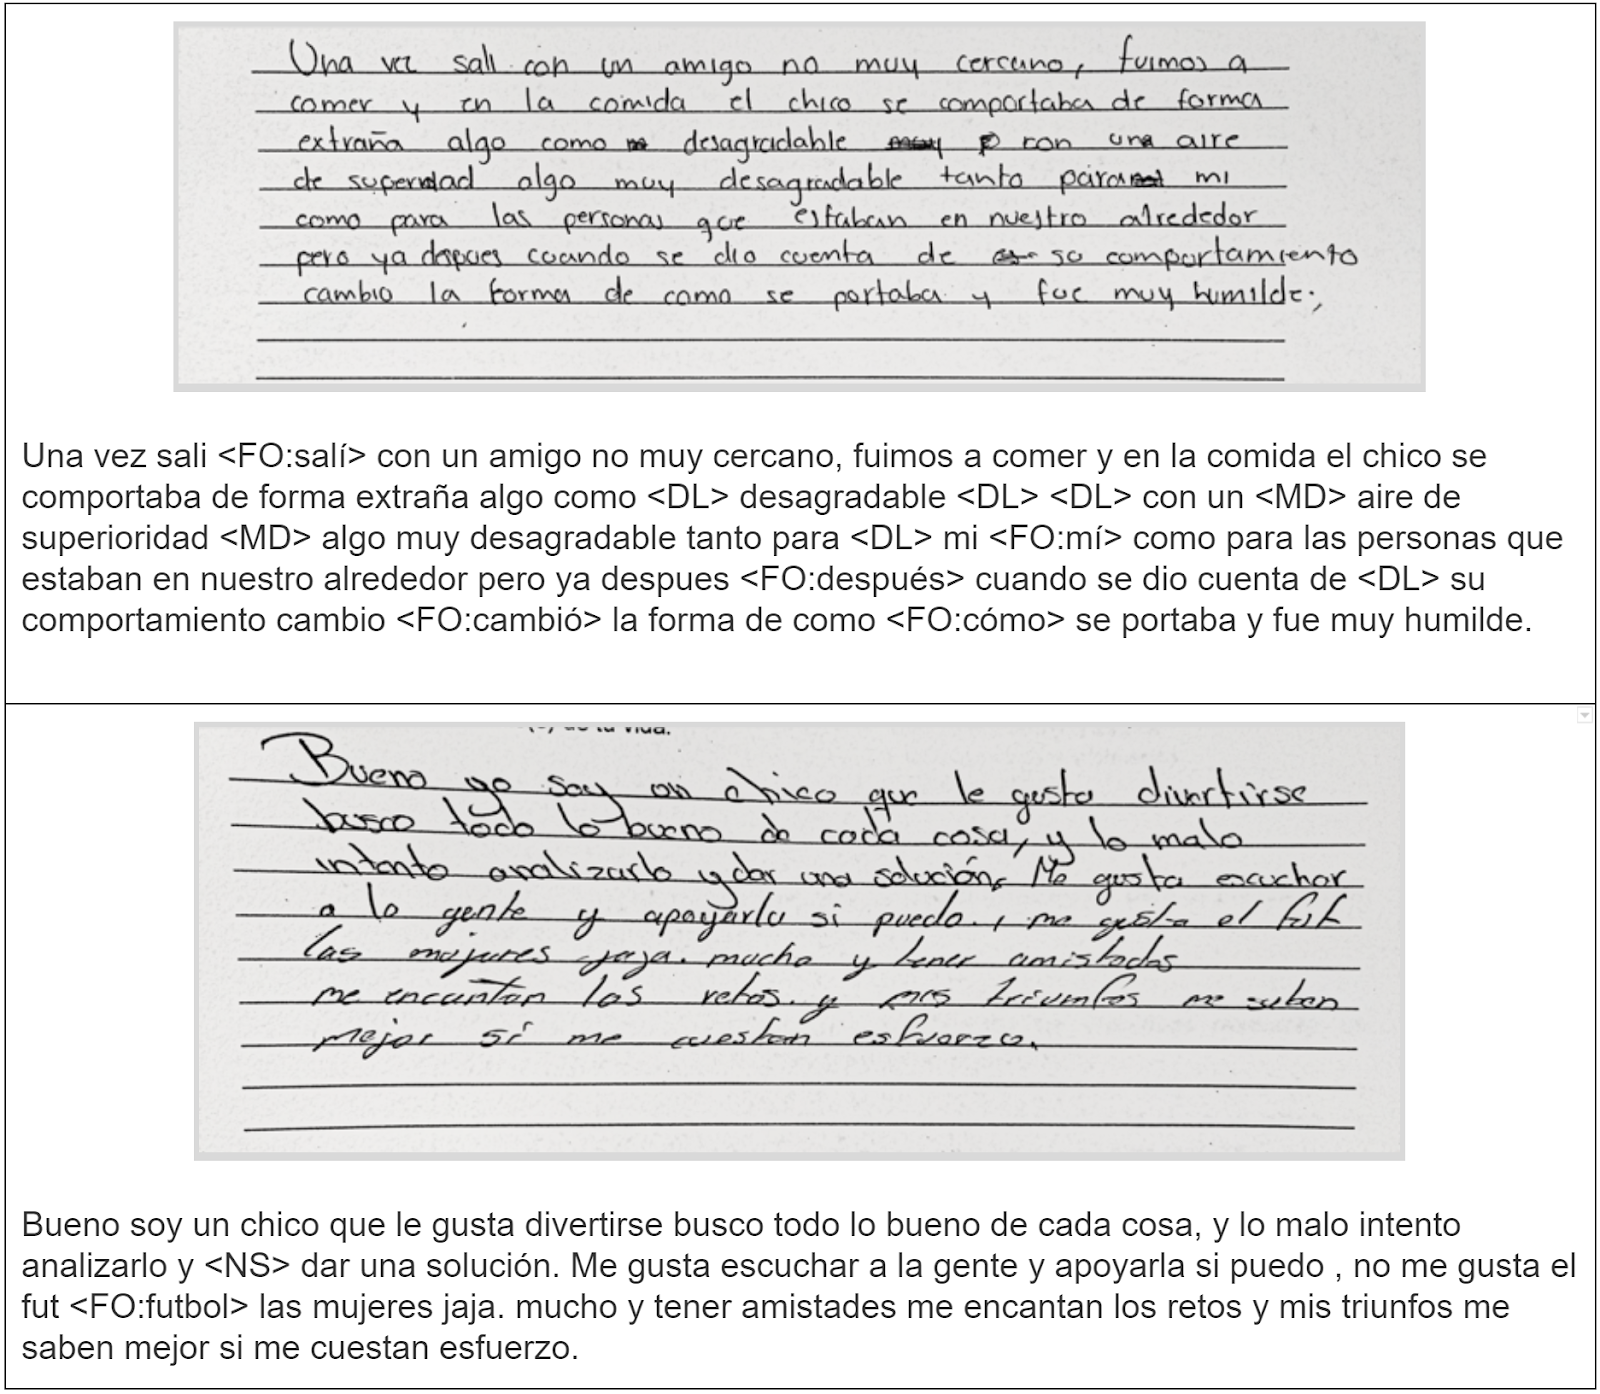 Una vez sali con un amigo no muy cercano, fuimos a
comer y en la comida el chico se comportaba de forma
extraña algo como desagradable con una aire
de superidad algo muy desagradable tanto para mi
como para las personas que estaban en nuestro alrededor
pero ya despues cuando se dio cuenta de su comportamiento
cambio la forma de como se portaba y fue muy humilde.
Una vez sali <FO:salí> con un amigo no muy cercano, fuimos a comer y en la comida el chico se
comportaba de forma extraña algo como <DL> desagradable <DL> <DL> con un <MD> aire de
superioridad <MD> algo muy desagradable tanto para <DL> mi <FO:mí> como para las personas que
estaban en nuestro alrededor pero ya despues <FO:después> cuando se dio cuenta de <DL> su
comportamiento cambio <FO:cambió> la forma de como <FO:cómo> se portaba y fue muy humilde.
Bueno yo soy un chico que le gusta divertirse
busco todo lo bueno de cada cosa, y lo malo
intento analizarlo y dar una solución. Me gusta escuchar
a la gente y apoyarla si puedo., me gusta el fut
las mujeres jaja. mucho y tener amistades
me encantan los retos. y mis triumfos me saben
mejor si me cuestan esfuerzo.
Bueno soy un chico que le gusta divertirse busco todo lo bueno de cada cosa, y lo malo intento
analizarlo y <NS> dar una solución. Me gusta escuchar a la gente y apoyarla si puedo , no me gusta el
fut <FO:futbol> las mujeres jaja. mucho y tener amistades me encantan los retos y mis triunfos me
saben mejor si me cuestan esfuerzo.